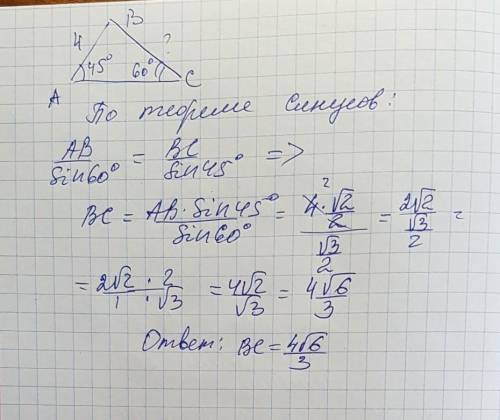 B
4 ?
45° 60°
A C
По теореме синусов:
AB/Sin60° = BC/Sin45° =>
BC = AB·Sin45°/Sin60° = (4·√2/2)/(√3/2) = 2√2/(√3/2) =
= 2√2·2/1·√3 = 4√2/√3 = 4√6/3
Ответ: BC = 4√6/3